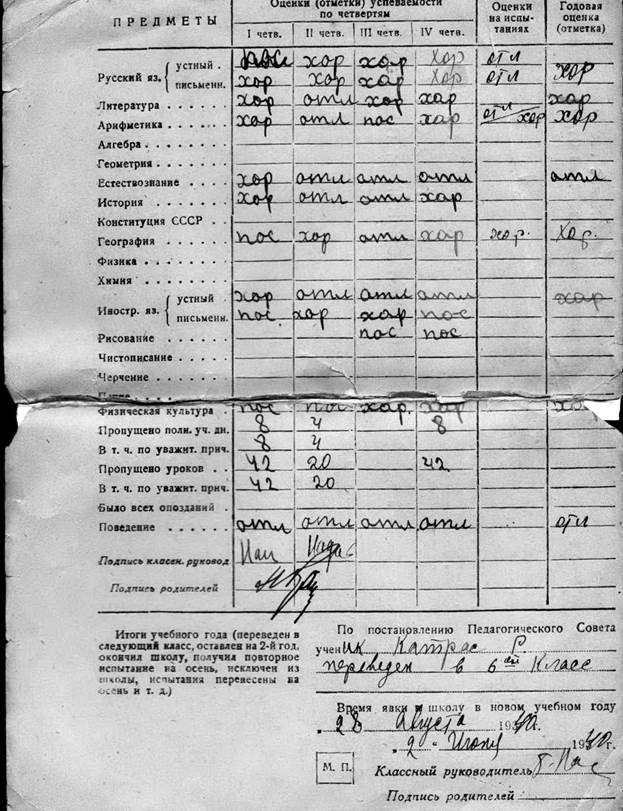 ПРЕДМЕТЫ Оценки (отметки) успеваемости по четвертям Оценки на испытаниях Годовая оценка (отметка)
I четв. II четв. III четв. IV четв.
Русский яз. { устный . пос хор хор хор отл
письменн. хор хор хор хор отл хор
Литература . . . . . хор отл хор хор хор
Арифметика . . . . . хор отл пос хор отл/хор хор
Алгебра . . . . . .
Геометрия . . . . . .
Естествознание . . . . хор отл отл отл отл
История . . . . . . хор отл отл хор
Конституция СССР . .
География . . . . . пос хор отл хор хор. хор.
Физика . . . . . . .
Химия . . . . . . .
Иностр. яз. { устный хор отл отл отл хор
письменн. пос. хор хор пос
Рисование . . . . . пос пос
Чистописание . . . . .
Черчение . . . . .
Физическая культура . пос пос хор. хор хор
Пропущено полн. уч. дн. 8 4 8
В т. ч. по уважит. прич. 8 4
Пропущено уроков . . 42 20 42
В т. ч. по уважит. прич. 42 20
Было всех опозданий .
Поведение . . . . . . отл отл отл отл отл
Подпись классн. руковод.
Подпись родителей
Итоги учебного года (переведен в
следующий класс, оставлен на 2-й год,
окончил школу, получил повторное
испытание на осень, исключен из
школы, испытания перенесены на
осень и т. д.)
По постановлению Педагогического Совета
ученик Катрас Р.
переведен в 6ой класс
Время явки в школу в новом учебном году
28 Августа 1940г.
2 - Июня 1940г.
М. П. Классный руководитель
Подпись родителей